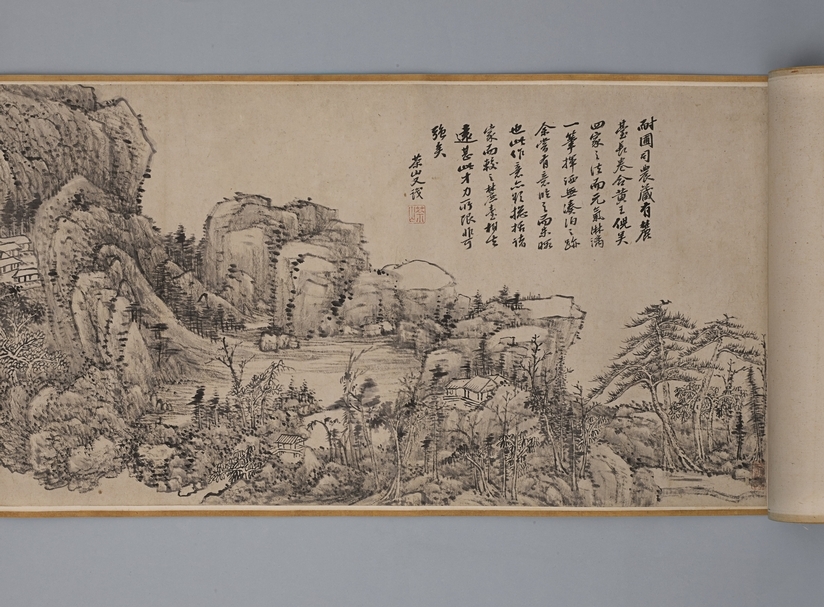 耐圃司農藏有麓
臺長卷合黃王倪吳
四家之法而元氣淋漓
一筆揮洒無湊泊之跡
余嘗有意臨之而未暇
也此作意亦諸
家而較之麓臺相去
遠甚此才力所限非可
強矣
茶山又識